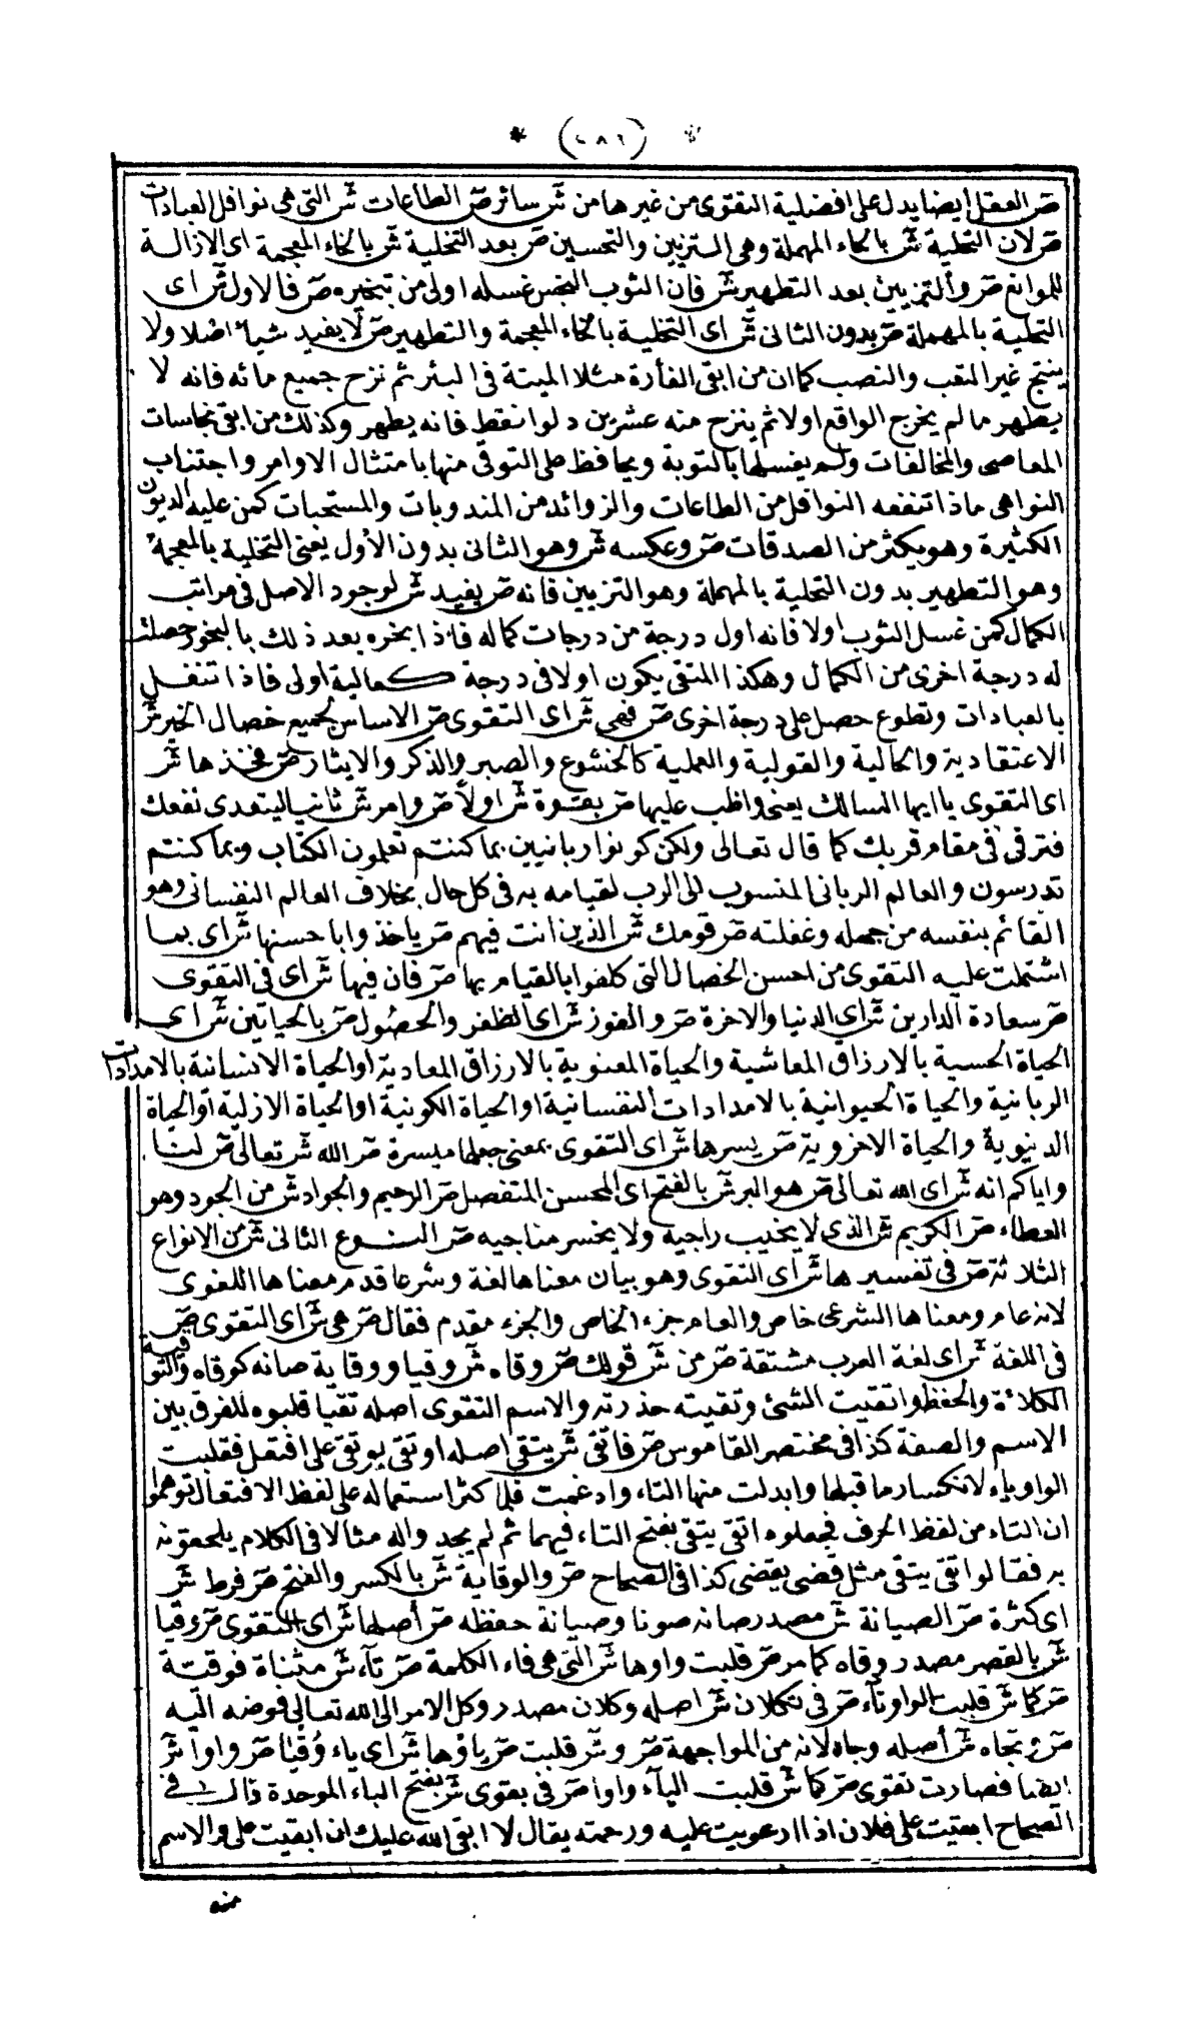 * (٢٨٦) *
صـ العقل ايضا يدل على افضلية التقوى من غيرها من شـ سائر صـ الطاعات شـ التى هى نوافل العبادات
صـ لان التحلية شـ بالحاء المهملة وهى التزيين والتحسين صـ بعد التخلية شـ بالخاء المعجمة اى الازالة
للموانع صـ والتزيين بعد التطهير شـ فان الثوب النجس غسله اولى من تبخيره صـ فالاول شـ اى
التحلية بالمهملة صـ بدون الثانى شـ اى التخلية بالخاء المعجمة والتطهير صـ لا يفيد شيأ اصلا ولا
ينتج غير التعب والنصب كما ان من ابقى الفأرة مثلا الميتة فى البئر ثم نزح جميع مائه فانه لا
يطهر ما لم يخرج الواقع اولا ثم ينزح منه عشرين دلوا فقط فانه يطهر وكذلك من ابقى نجاسات
المعاصى والمخالفات ولم يغسلها بالتوبة ويحافظ على التوقى منها بامتثال الاوامر واجتناب
النواهى ماذا تنفعه النوافل من الطاعات والزوائد من المندوبات والمستحبات كمن عليه الديون
الكثيرة وهو يكثر من الصدقات صـ وعكسه شـ وهو الثانى بدون الأول يعنى التخلية بالمعجمة
وهو التطهير بدون التحلية بالمهملة وهو التزيين فانه صـ يفيد شـ لوجود الاصل فى مراتب
الكمال كمن غسل الثوب اولا فانه اول درجة من درجات كماله فاذا بخره بعد ذلك بالبخور حصلت
له درجة اخرى من الكمال وهكذا المتقى يكون اولا فى درجة كمالية اولى فاذا تنفل
بالعبادات وتطوع حصل على درجة اخرى صـ فهى شـ اى التقوى صـ الاساس لجميع خصال الخير شـ
الاعتقادية والحالية والقولية والعملية كالخشوع والصبر والذكر والايثار صـ فخذها شـ
اى التقوى يا ايها السالك يعنى واظب عليها صـ بقوة شـ اولا صـ وامر شـ ثانيا ليتعدى نفعك
فترقى فى مقام قربك كما قال تعالى ولكن كونوا ربانيين بما كنتم تعلمون الكتاب وبما كنتم
تدرسون والعالم الربانى المنسوب الى الرب لقيامه به فى كل حال بخلاف العالم النفسانى وهو
القائم بنفسه من جهله وغفلته صـ قومك شـ الذين انت فيهم صـ ياخذوا باحسنها شـ اى بما
اشتملت عليه التقوى من احسن الخصال التى كلفوا بالقيام بها صـ فان فيها شـ اى فى التقوى
صـ سعادة الدارين شـ اى الدنيا والاخرة صـ والفوز شـ اى الظفر والحصول صـ بالحياتين شـ اى
الحياة الحسية بالارزاق المعاشية والحياة المعنوية بالارزاق المعادية او الحياة الانسانية بالامدادات
الربانية والحياة الحيوانية بالامدادات النفسانية او الحياة الكونية او الحياة الازلية او الحياة
الدنيوية والحياة الاخروية صـ يسرها شـ اى التقوى بمعنى جعلها ميسرة صـ الله شـ تعالى صـ لنا
واياكم انه شـ اى الله تعالى صـ هو البر شـ بالفتح اى المحسن المتفضل صـ الرحيم والجواد شـ من الجود وهو
العطاء صـ الكريم شـ الذى لا يخيب راجيه ولا يخسر مناجيه صـ النوع الثانى شـ من الانواع
الثلاثة صـ فى تفسيرها شـ اى التقوى وهو بيان معناها لغة وشرعا قدم معناها اللغوى
لانه عام ومعناها الشرعى خاص والعام جزء الخاص والجزء مقدم فقال صـ هى شـ اى التقوى صـ
فى اللغة شـ اى لغة العرب مشتقة صـ من شـ قولك صـ وقاه شـ وقيا ووقاية صانه كوقاه والتوقية
الكلاءة والحفظ واتقيت الشئ وتقيته حذرته والاسم التقوى اصله تقيا قلبوه للفرق بين
الاسم والصفة كذا فى مختصر القاموس صـ فاتقى شـ يتقى اصله اوتقى يوتقى على افتعل فقلبت
الواو ياء لانكسار ما قبلها وابدلت منها التاء وادغمت فلما كثر استعماله على لفظ الافتعال توهموا
ان التاء من لفظ الحرف فجعلوه اتقى يتقى بفتح التاء فيهما ثم لم يجدوا له مثالا فى الكلام يلحقونه
به فقالوا تقى يتقى مثل قضى يقضى كذا فى الصحاح صـ والوقاية شـ بالكسر والفتح صـ فرط شـ
اى كثرة صـ الصيانة شـ مصدر صانه صونا وصيانة حفظه صـ أصلها شـ اى التقوى صـ وقيا
شـ بالقصر مصدر وقاه كما مر صـ قلبت واوها شـ التى هى فاء الكلمة صـ تآء شـ مثناة فوقية
صـ كما شـ قلبت الواو تآء صـ فى تكلان شـ اصله وكلان مصدر وكل الامر الى الله تعالى فوضه اليه
صـ وتجاه شـ أصله وجاه لانه من المواجهة صـ و شـ قلبت صـ ياؤها شـ اى ياء وقيا صـ واوا شـ
ايضا فصارت تقوى صـ كما شـ قلبت اليآء واوا صـ فى بقوى شـ بفتح الباء الموحدة قال فى
الصحاح ابقيت على فلان اذا ارعويت عليه ورحمته يقال لا ابقى الله عليك ان ابقيت على والاسم
منه